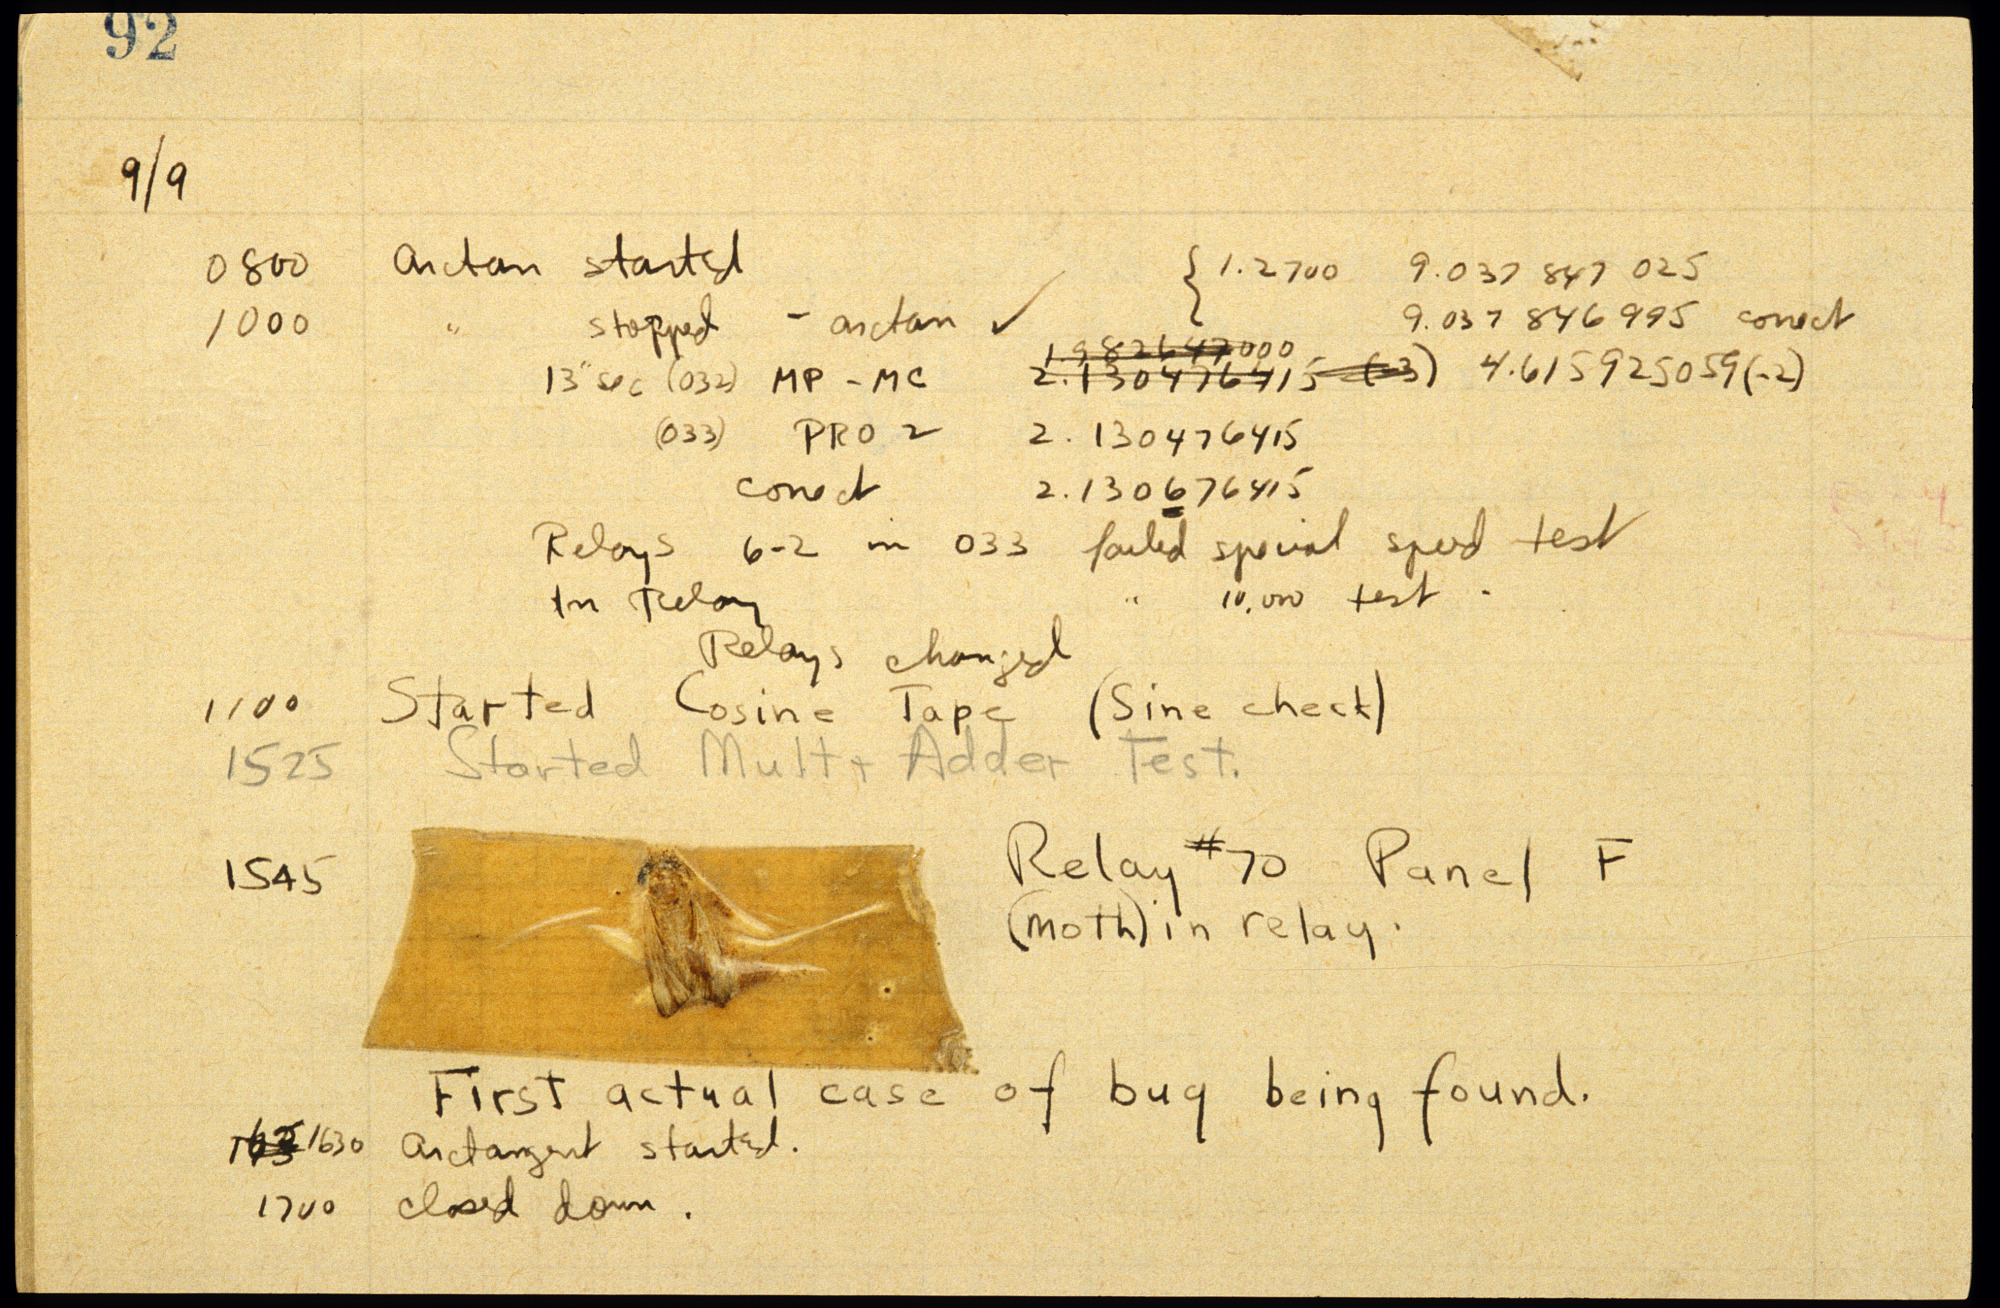 92
9/9
0800 arctan started { 1.2700 9.037 847 025
1000 " stopped - arctan ✓ 9.037 846 995 correct
13" sec (032) MP - MC 1.982647000 2.130476415 (-3) 4.615925059(-2)
(033) PRO 2 2.130476415
correct 2.130676415
Relays 6-2 in 033 failed special speed test
In Relay " 10,000 test .
Relays changed
1100 Started Cosine Tape (Sine check)
1525 Started Mult + Adder Test.
1545 Relay #70 Panel F
(moth) in relay.
First actual case of bug being found.
1630 arctangent started.
1700 closed down.